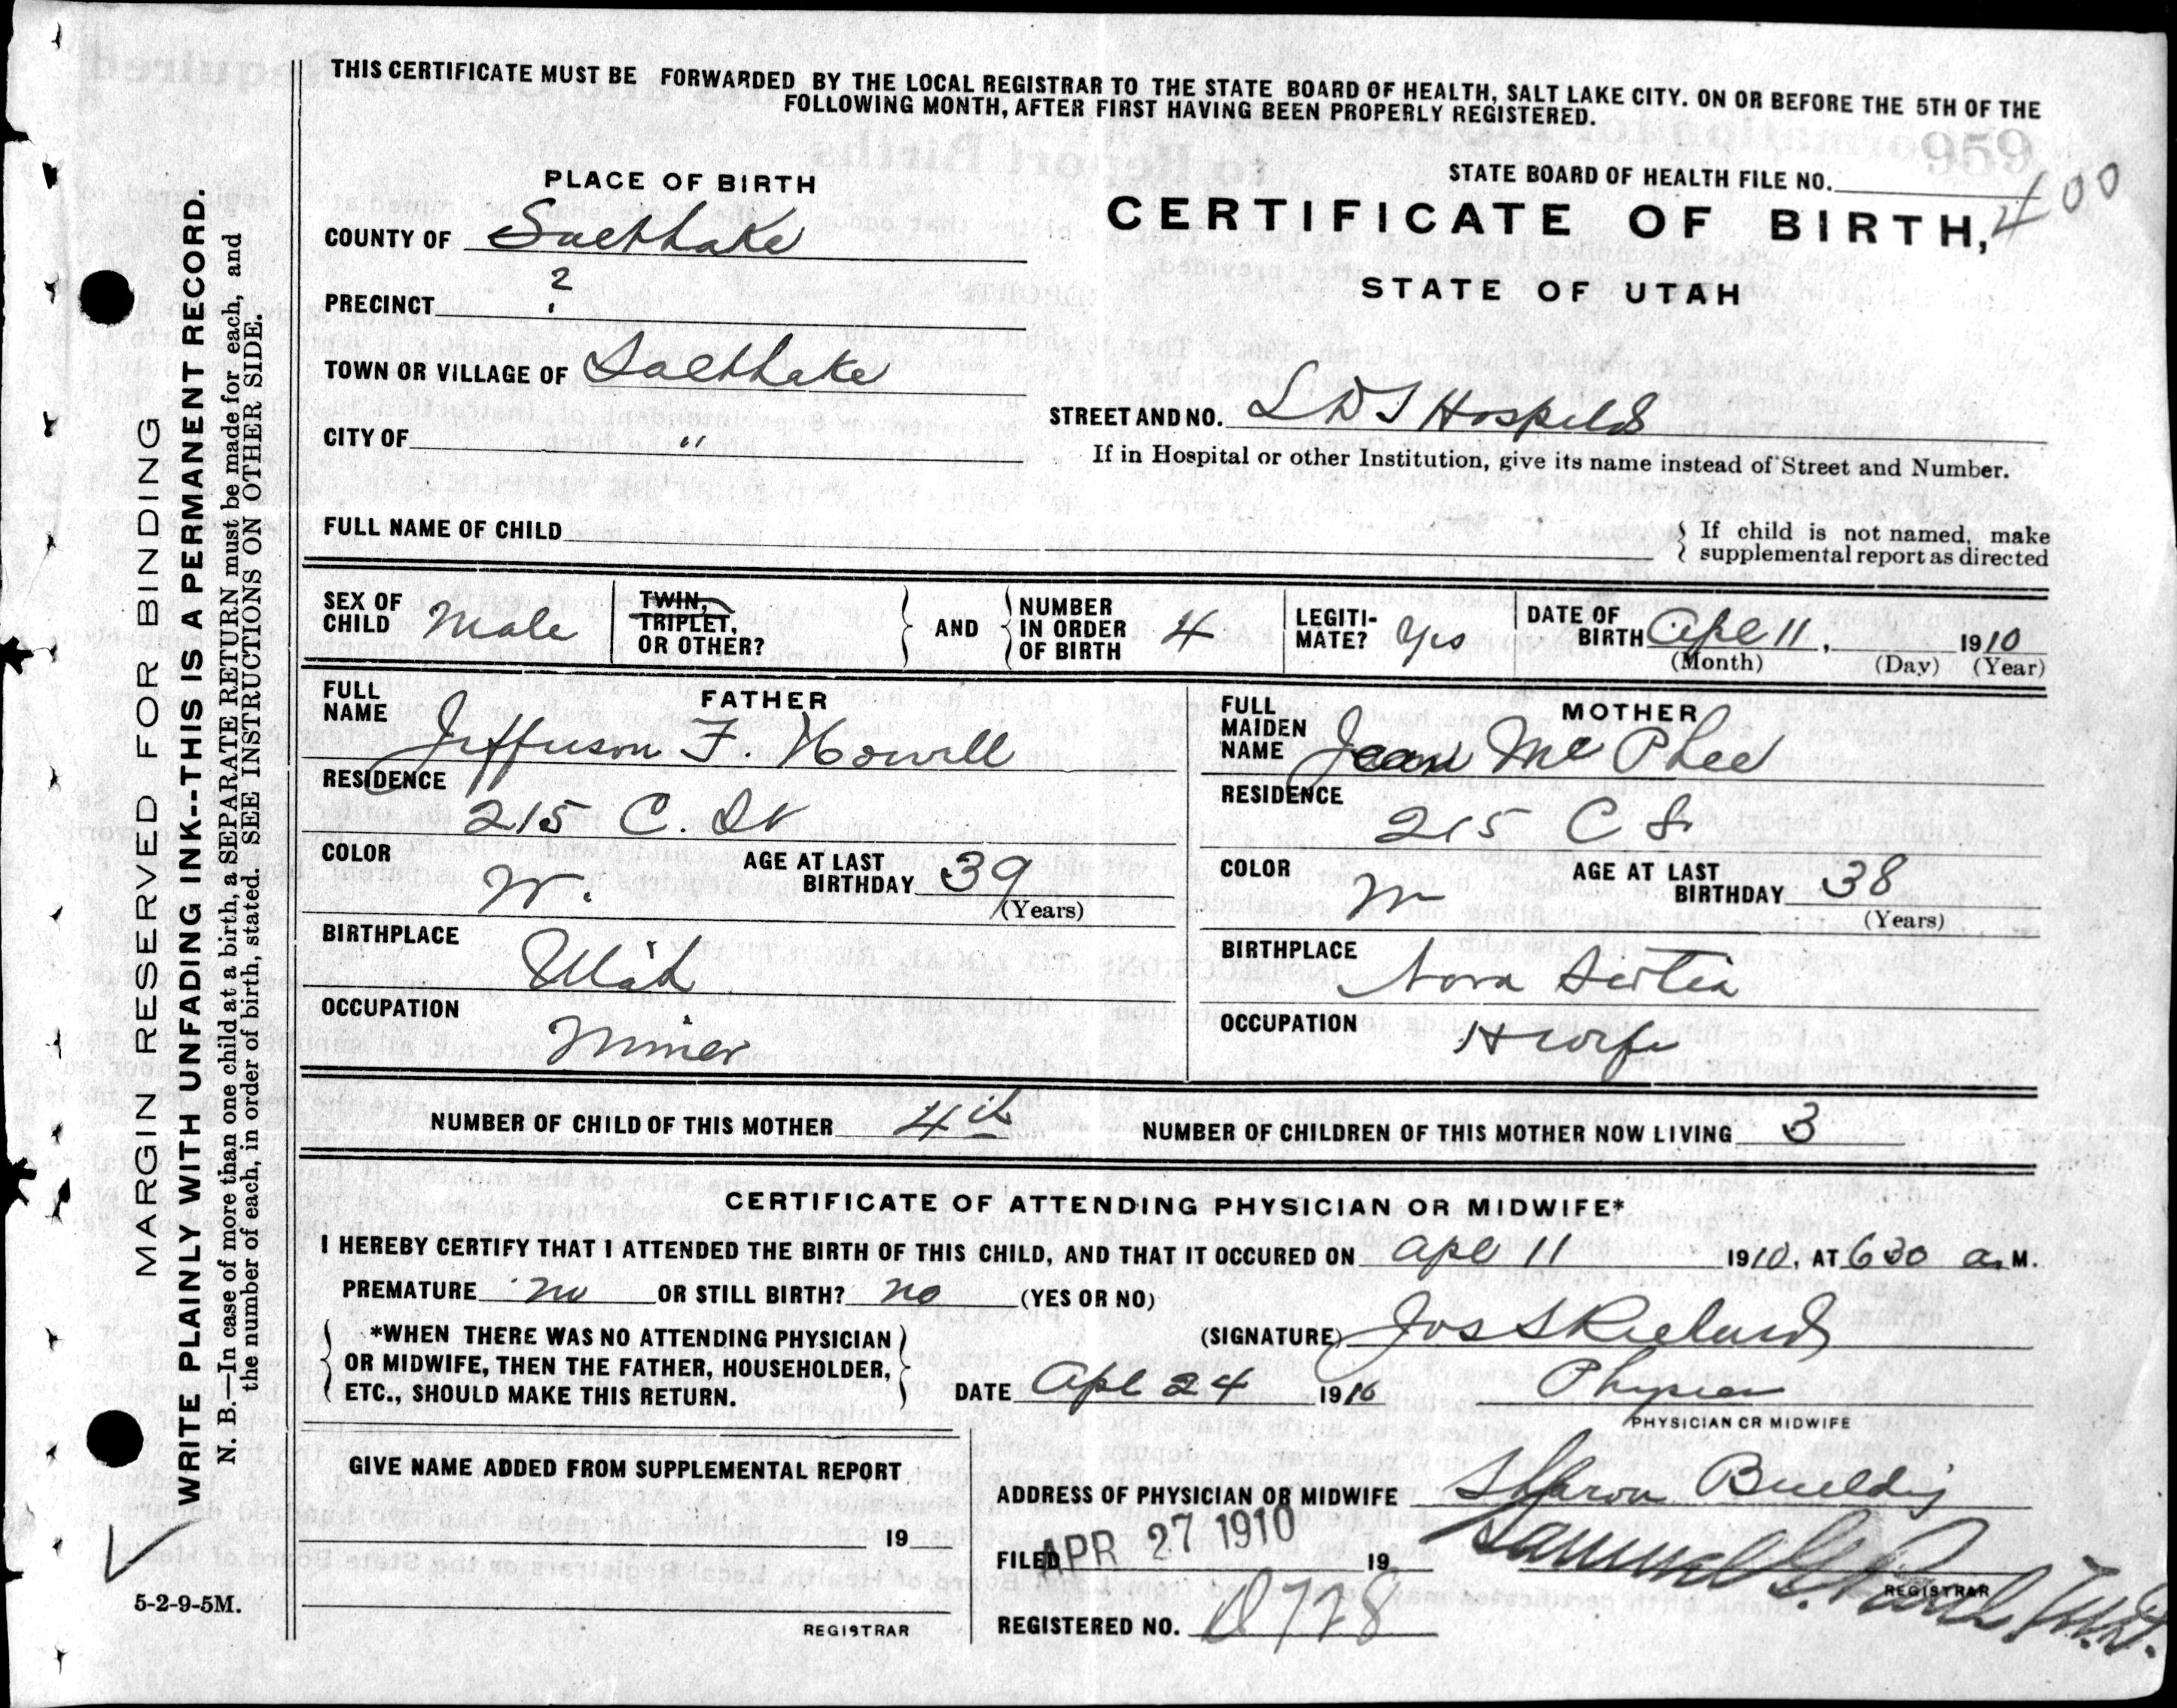 THIS CERTIFICATE MUST BE FORWARDED BY THE LOCAL REGISTRAR TO THE STATE BOARD OF HEALTH, SALT LAKE CITY. ON OR BEFORE THE 5TH OF THE
FOLLOWING MONTH, AFTER FIRST HAVING BEEN PROPERLY REGISTERED.
PLACE OF BIRTH
STATE BOARD OF HEALTH FILE NO. 400
COUNTY OF Salt Lake
CERTIFICATE OF BIRTH,
PRECINCT 2
STATE OF UTAH
TOWN OR VILLAGE OF Salt Lake
STREET AND NO. LDS Hospital
CITY OF "
If in Hospital or other Institution, give its name instead of Street and Number.
FULL NAME OF CHILD
If child is not named, make
supplemental report as directed
SEX OF CHILD Male
TWIN, TRIPLET, OR OTHER?
AND
NUMBER IN ORDER OF BIRTH 4
LEGITIMATE? Yes
DATE OF BIRTH Apl 11, 1910
(Month) (Day) (Year)
FATHER
FULL NAME Jefferson F. Howell
RESIDENCE
215 C. St
COLOR W. AGE AT LAST BIRTHDAY 39
(Years)
BIRTHPLACE
Utah
OCCUPATION
Miner
MOTHER
FULL MAIDEN NAME Jean McPhee
RESIDENCE
215 C St
COLOR W AGE AT LAST BIRTHDAY 38
(Years)
BIRTHPLACE
Nova Scotia
OCCUPATION
H wife
NUMBER OF CHILD OF THIS MOTHER 4th
NUMBER OF CHILDREN OF THIS MOTHER NOW LIVING 3
CERTIFICATE OF ATTENDING PHYSICIAN OR MIDWIFE*
I HEREBY CERTIFY THAT I ATTENDED THE BIRTH OF THIS CHILD, AND THAT IT OCCURED ON Apl 11 1910, AT 630 a.M.
PREMATURE no OR STILL BIRTH? no (YES OR NO)
*WHEN THERE WAS NO ATTENDING PHYSICIAN
OR MIDWIFE, THEN THE FATHER, HOUSEHOLDER,
ETC., SHOULD MAKE THIS RETURN.
(SIGNATURE) Jos S Richards
DATE Apl 24 1910 Physician
PHYSICIAN OR MIDWIFE
GIVE NAME ADDED FROM SUPPLEMENTAL REPORT
19
REGISTRAR
ADDRESS OF PHYSICIAN OR MIDWIFE Sharon Building
FILED APR 27 1910 19
Samuel G. Paul, M.D.
REGISTRAR
REGISTERED NO.
5-2-9-5M.
MARGIN RESERVED FOR BINDING
WRITE PLAINLY WITH UNFADING INK--THIS IS A PERMANENT RECORD.
N. B.—In case of more than one child at a birth, a SEPARATE RETURN must be made for each, and
the number of each, in order of birth, stated. SEE INSTRUCTIONS ON OTHER SIDE.
959